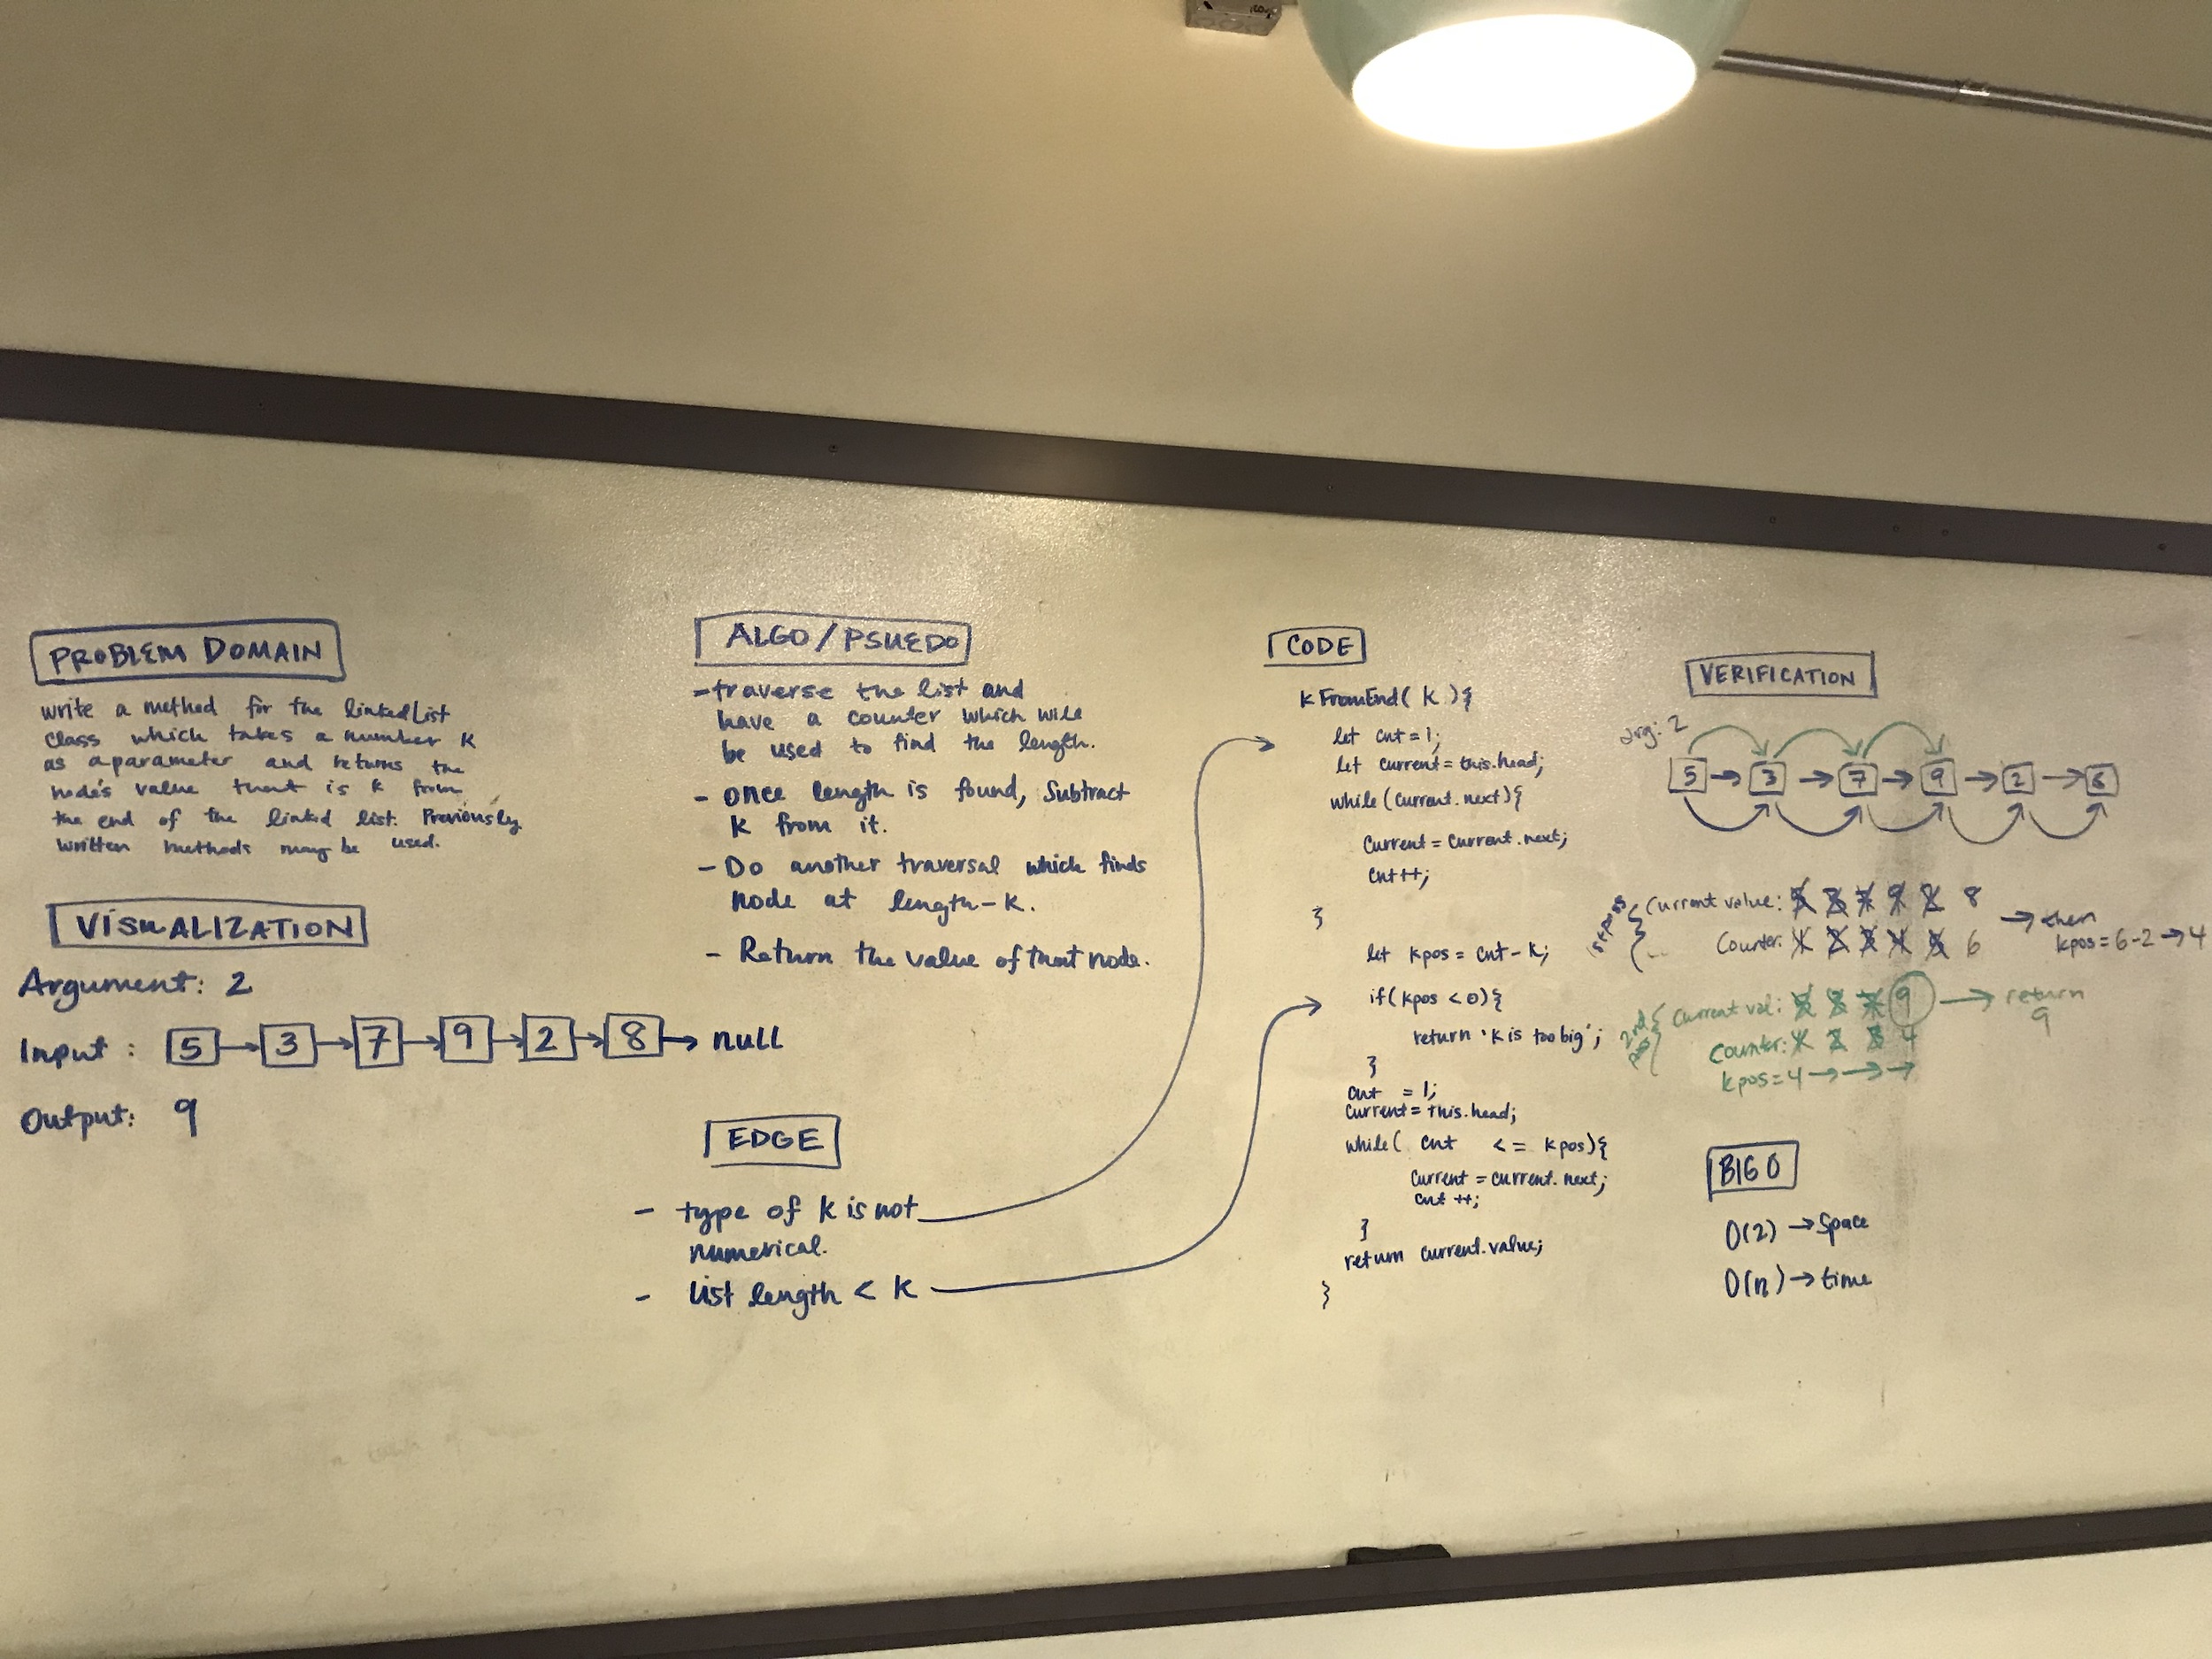 PROBLEM DOMAIN
write a method for the linkedList
class which takes a number K
as a parameter and returns the
node's value that is k from
the end of the linked list. Previously
written methods may be used.
VISUALIZATION
Argument: 2
Input: 5 → 3 → 7 → 9 → 2 → 8 → null
Output: 9
ALGO/PSUEDO
- traverse the list and
have a counter which will
be used to find the length.
- once length is found, Subtract
K from it.
- Do another traversal which finds
node at length-K.
- Return the value of that node.
EDGE
- type of K is not
numerical.
- List length < K
CODE
kFromEnd( K ){
let cnt = 1;
let current = this.head;
while (current.next){
current = current.next;
cnt++;
}
let kpos = cnt - K;
if (kpos < 0){
return 'K is too big';
}
cnt = 1;
current = this.head;
while( cnt <= kpos){
current = current.next;
cnt ++;
}
return current.value;
}
VERIFICATION
arg: 2
5 → 3 → 7 → 9 → 2 →
1st pass
Current value: 9 8
Counter: 6
→ then
kpos = 6-2 → 4
2nd pass
Current val: 9 → return
9
Counter: 4
kpos = 4 → → →
BIG O
O(2) → Space
O(n) → time